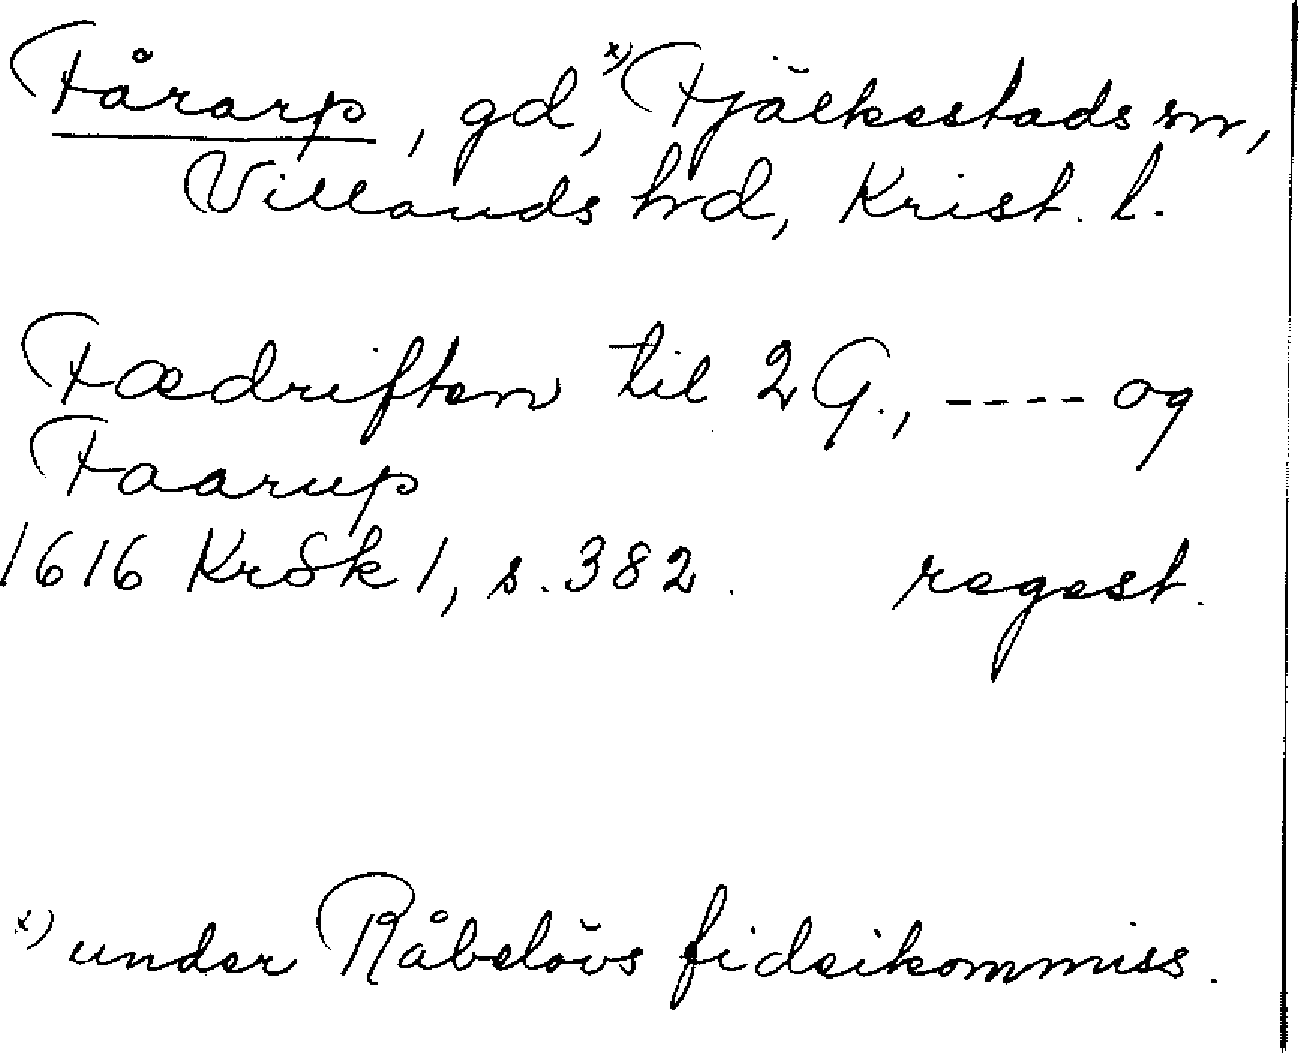 Fårarp, gd,x) Fjälkestads sn,
Villands hd, Krist. l.
Fædriften til 2 G., ---- og
Faarup
1616 KrSk 1, s. 382. regest.
x) under Råbelövs fideikommiss.